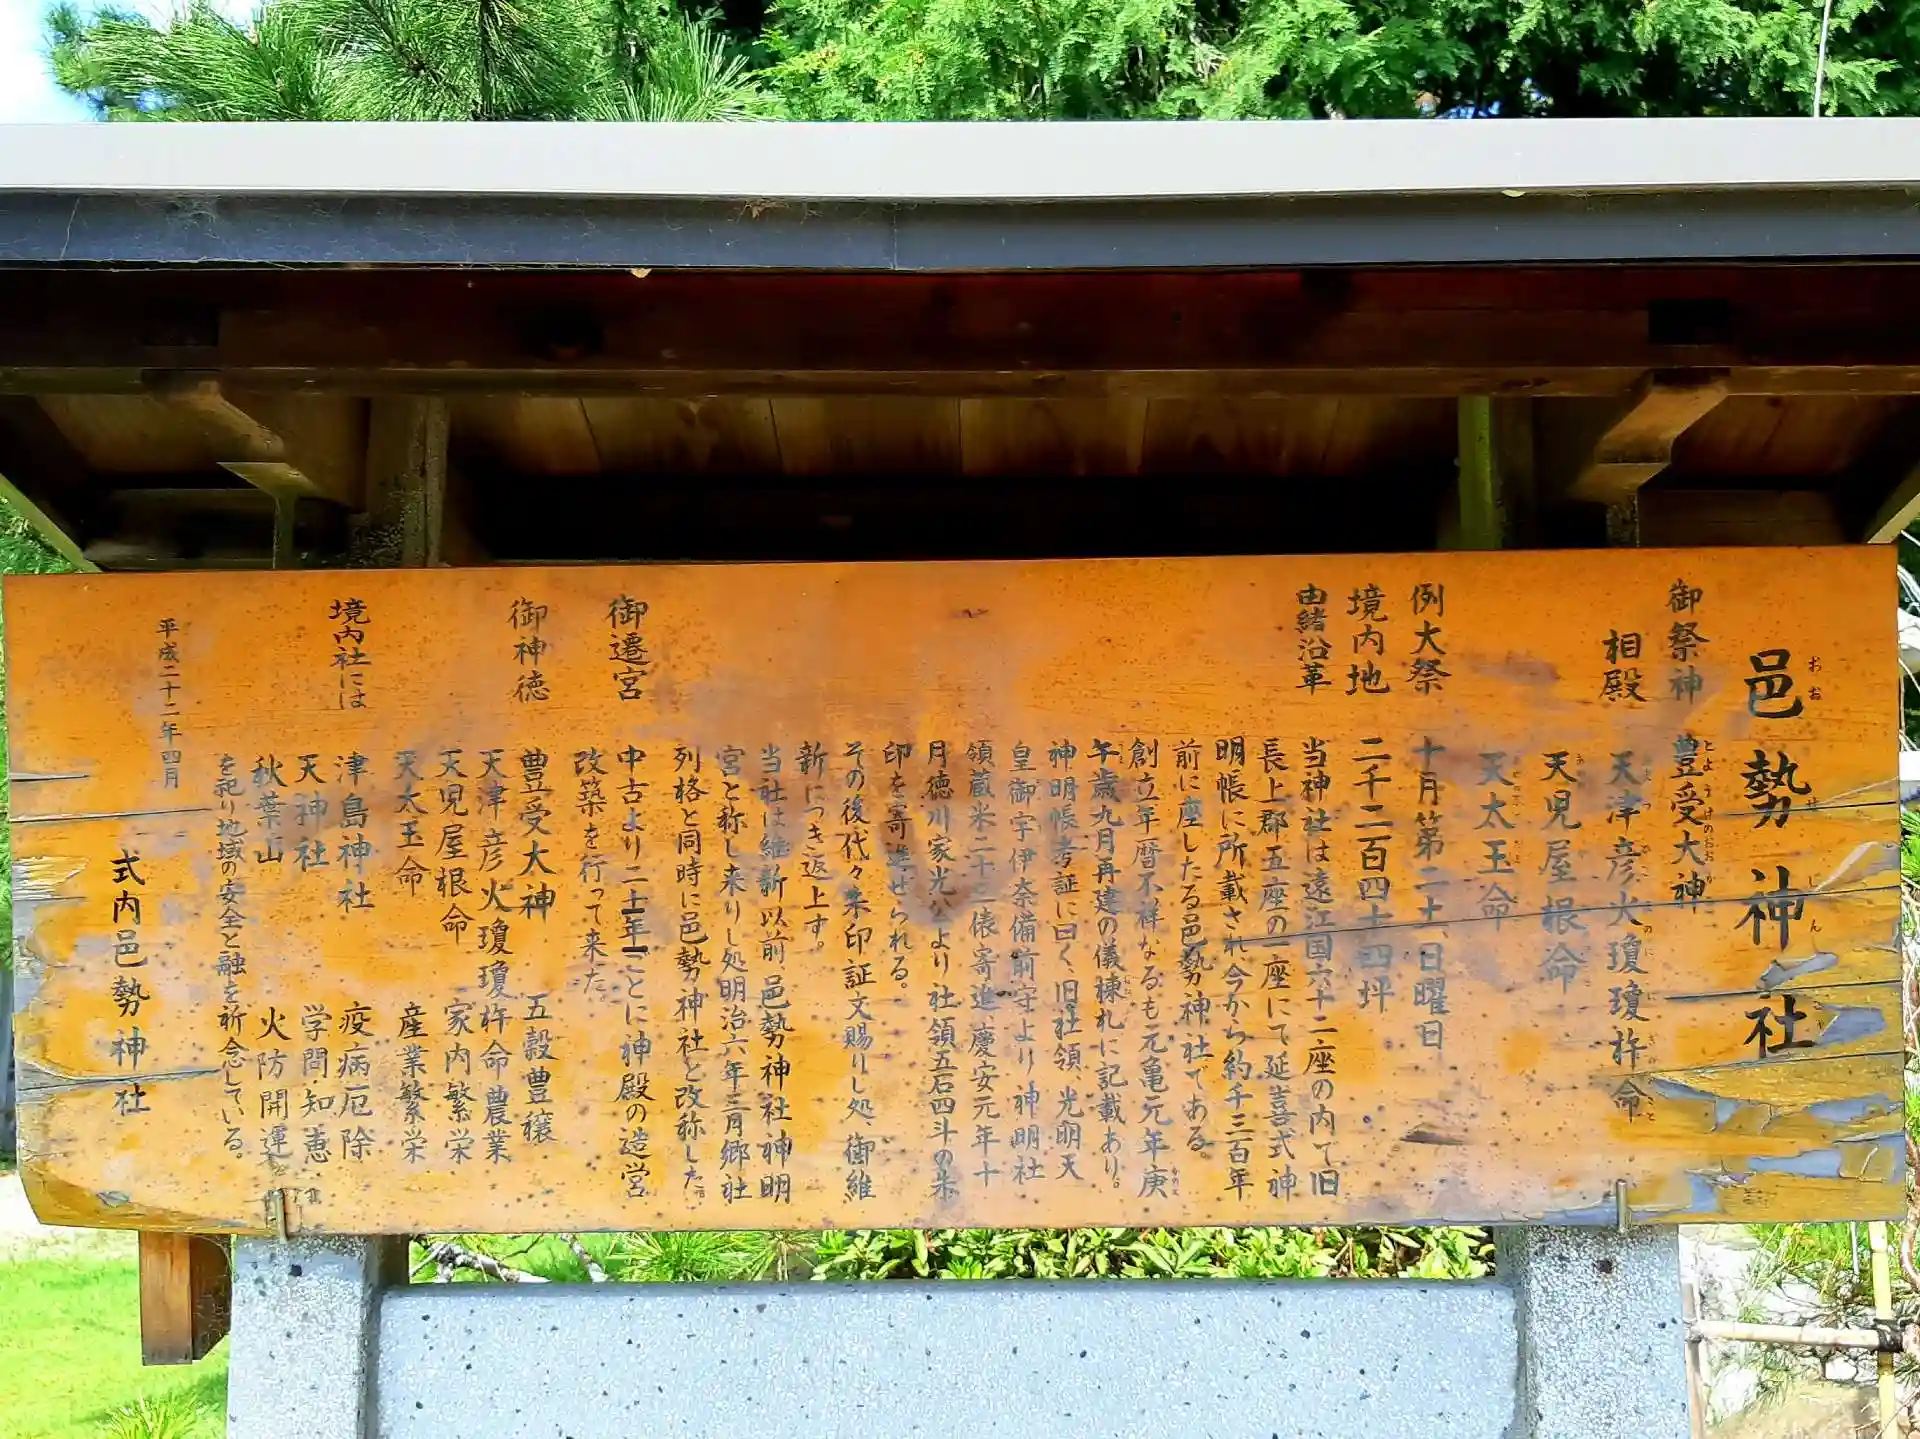 邑勢神社
おおせじんじゃ
御祭神 豊受大神
とようけのおおかみ
相殿 天津彦火瓊瓊杵命
天児屋根命
天太玉命
例大祭 十月第二土、日曜日
境内地 二千二百四十四坪
由緒沿革 当神社は遠江国六十二座の内で旧
長上郡五座の一座にて延喜式神
明帳に所載され今から約千三百年
前に座したる邑勢神社である。
創立年暦不祥なるも元亀元年庚
午歳九月再建の儀棟札に記載あり。
神明帳考証に曰く、旧社領、光明天
皇御宇伊奈備前守より神明社
領蔵米二十三俵寄進、慶安元年十
月徳川家光公より社領五石四斗の朱
印を寄進せられる。
その後代々朱印証文賜りし処、御維
新につき返上す。
当社は維新以前、邑勢神社神明
宮と称し来りし処明治六年三月郷社
列格と同時に邑勢神社と改称した。
御遷宮 中古より二十年ごとに神殿の造営
改築を行って来た。
御神徳 豊受大神 五穀豊穣
天津彦火瓊瓊杵命 農業
天児屋根命 家内繁栄
天太玉命 産業繁栄
境内社には 津島神社 疫病厄除
天神社 学問知恵
秋葉山 火防開運
を祀り地域の安全と融を祈念している。
平成二十二年四月
式内邑勢神社